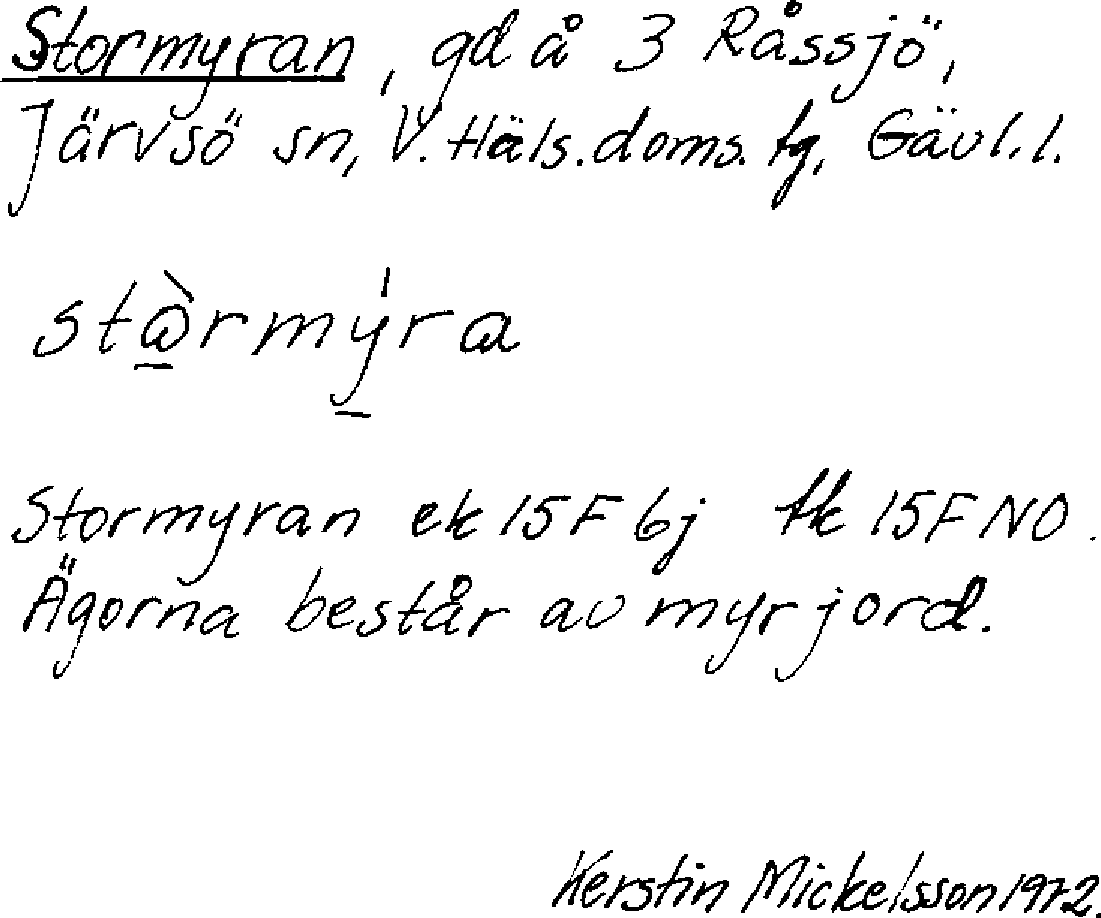 Stormyran, gd å 3 Råssjö,
Järvsö sn, V. Häls. doms. tg, Gävl. l.
stɷ̀rmýra
Stormyran ek 15F 6j tk 15F NO.
Ägorna består av myrjord.
Kerstin Mickelsson 1972.